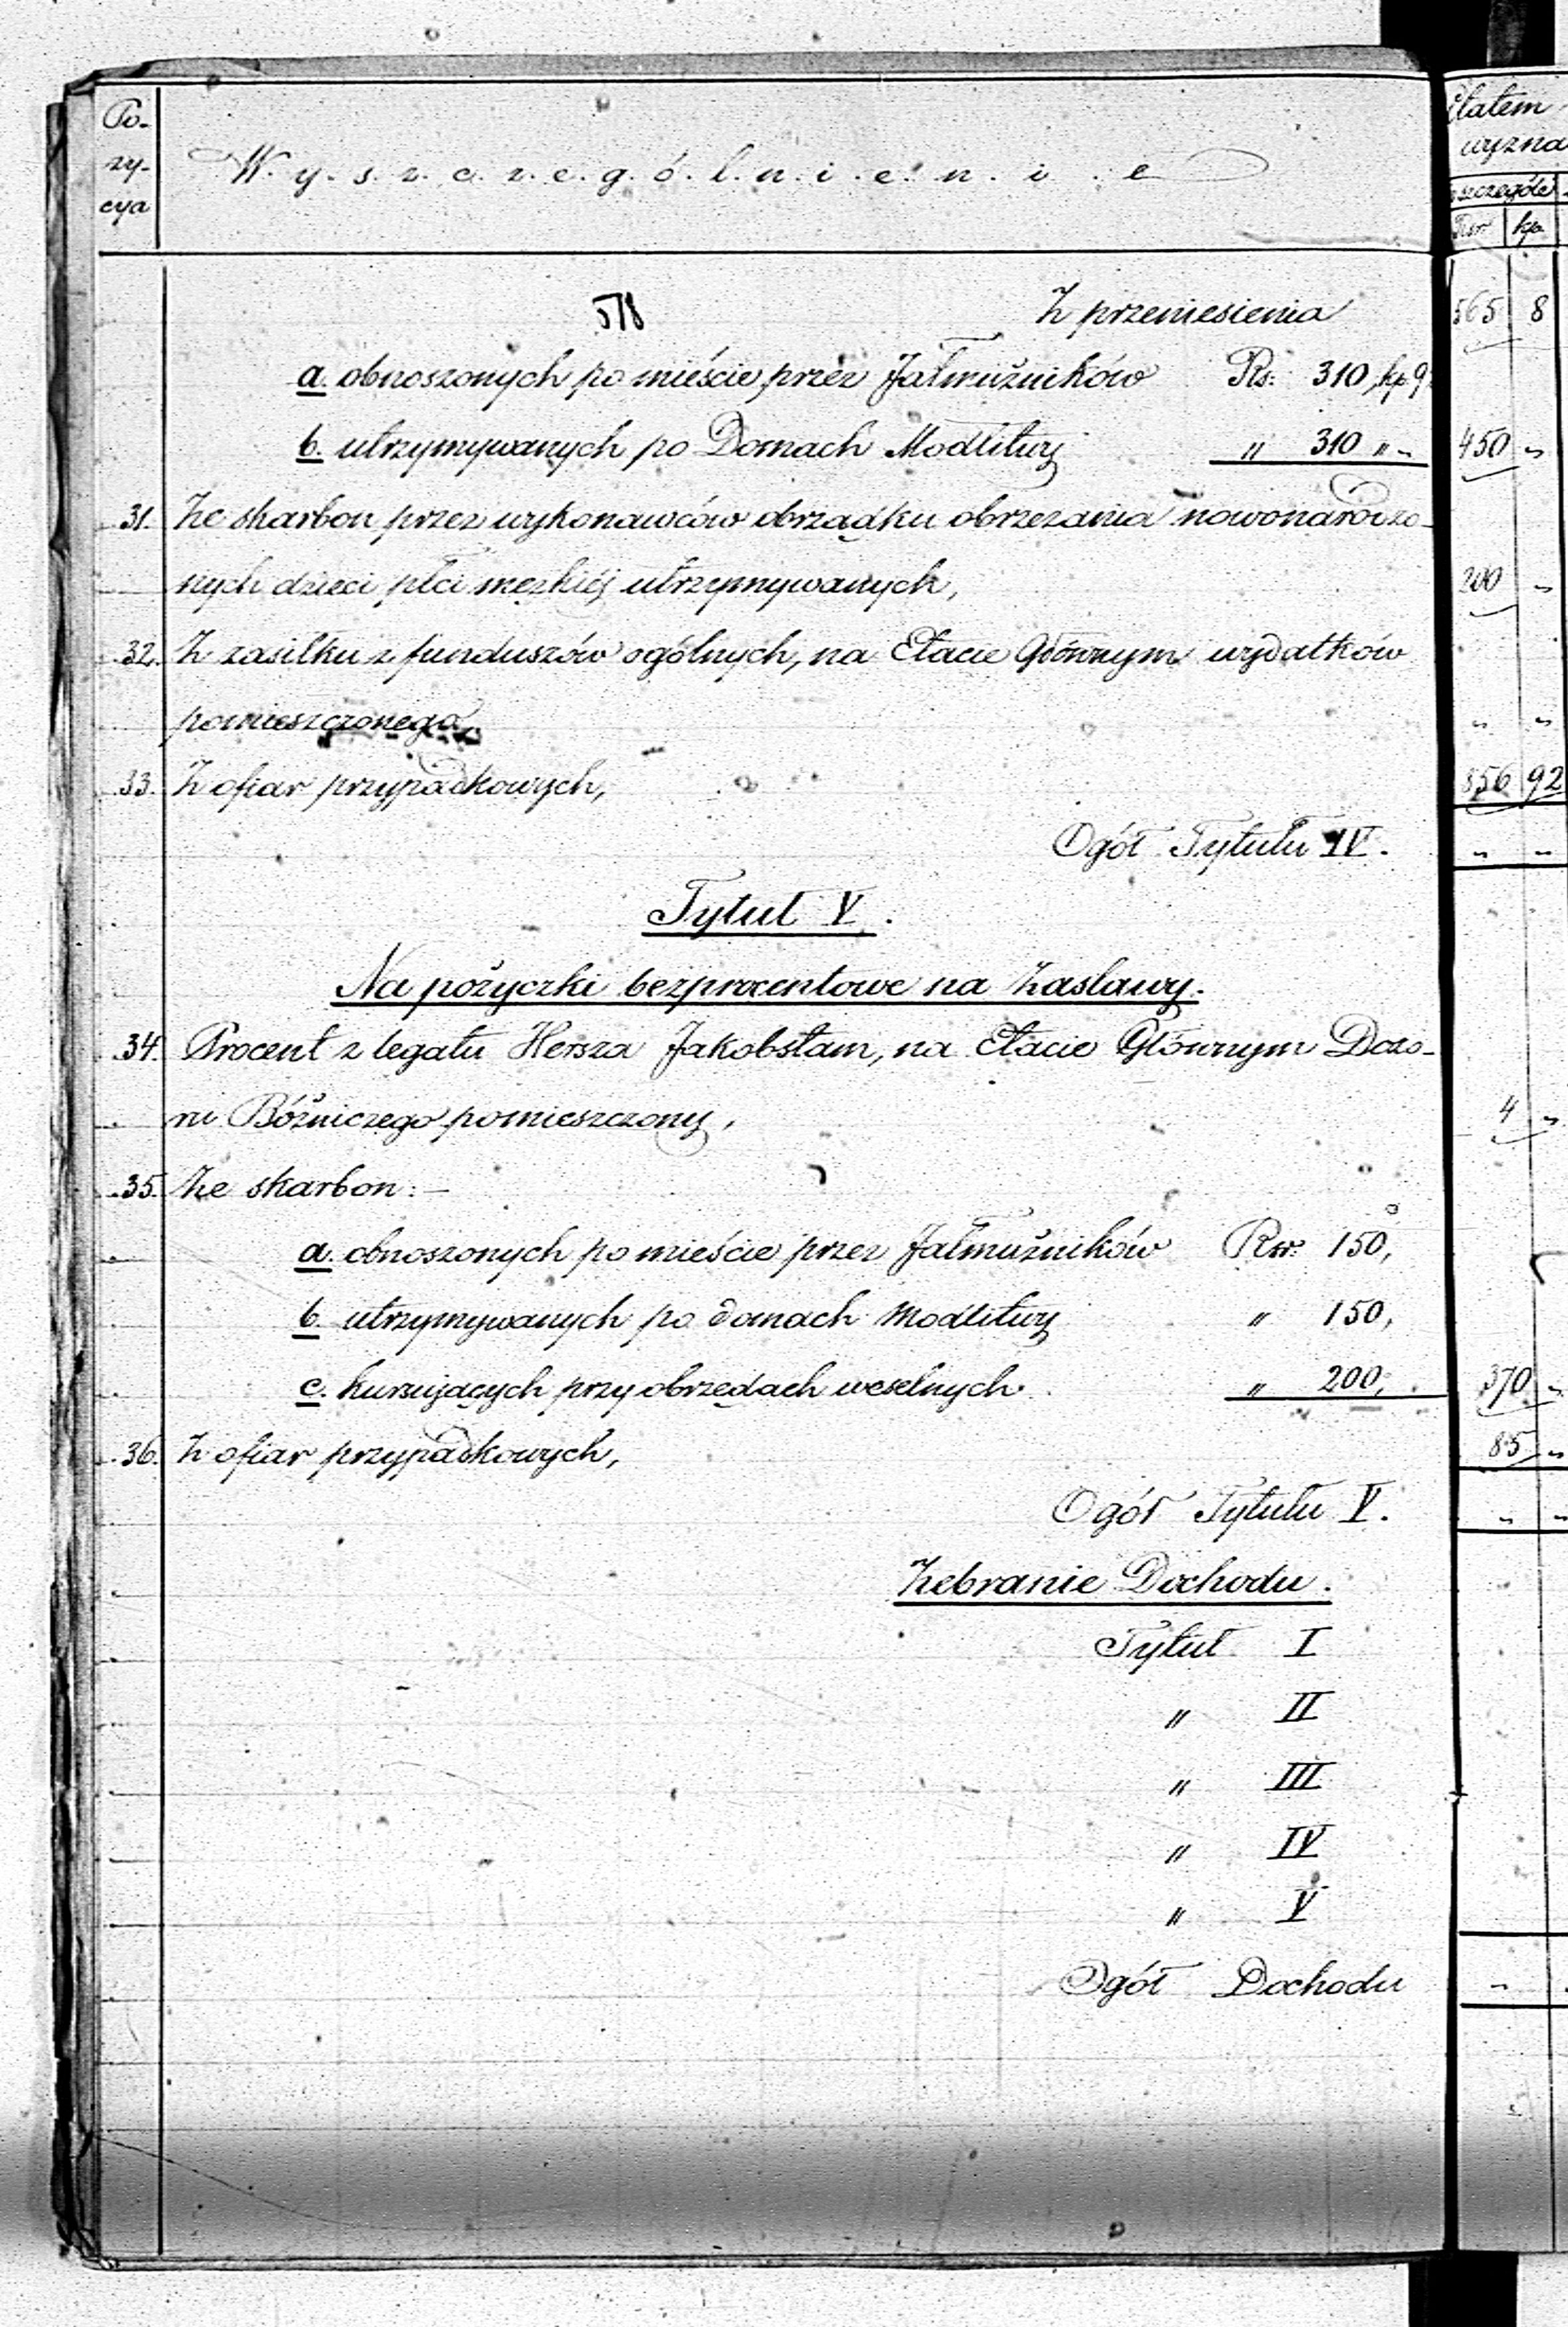 Po-
zy-
cya
W.y.s.z.c.z.e.g.ó.l.n.i.e.n.i.e
Etatem
wyzna
szczególe
Rsr. kp.
578
Z przeniesienia 565 8
a. obnoszonych po mieście przez Jałmużników Rs: 310, kp 9
b. utrzymywanych po Domach Modlitwy " 310 " " 450 "
31. Ze skarbon przez wykonawców obrządku obrzezania nowonarodzo-
nych dzieci płci męzkiéj utrzymywanych, 200 "
32. Z zasiłku z funduszów ogólnych, na Etacie Głównym wydatków
pomieszczonego, " "
33. Z ofiar przypadkowych, 856 92
Ogół Tytułu IV. " "
Tytuł V.
Na pożyczki bezprocentowe na Zastawy.
34. Procent z legatu Hersza Jakobstam, na Etacie Głównym Dozo-
ru Bóżniczego pomieszczony, 4 "
35. Ze skarbon:-
a. obnoszonych po mieście przez Jałmużników Rsr: 150,
b. utrzymywanych po domach Modlitwy " 150,
c. kursujących przy obrzędach weselnych " 200, 370 "
36. Z ofiar przypadkowych, 85 "
Ogół Tytułu V. " "
Zebranie Dochodu.
Tytuł I
" II
" III
" IV
" V
Ogół Dochodu "